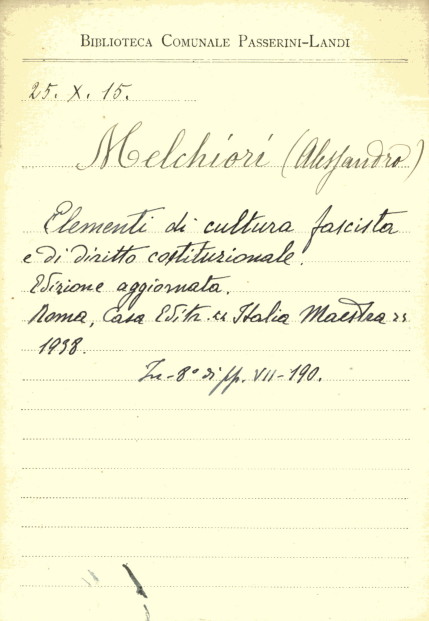 BIBLIOTECA COMUNALE PASSERINI-LANDI
25. X. 15.
Melchiori (Alessandro)
Elementi di cultura fascista
e di diritto costituzionale.
Edizione aggiornata.
Roma, Casa Editr. « Italia Maestra »
1938.
In-8° di pp. VII-190.